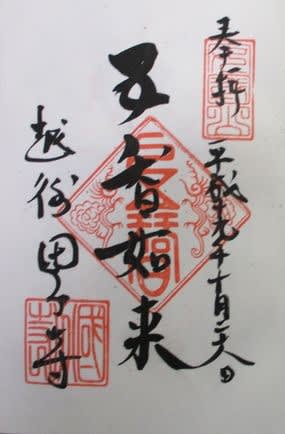 奉拝
平成十九年十月二八日
五智如来
越後国分寺